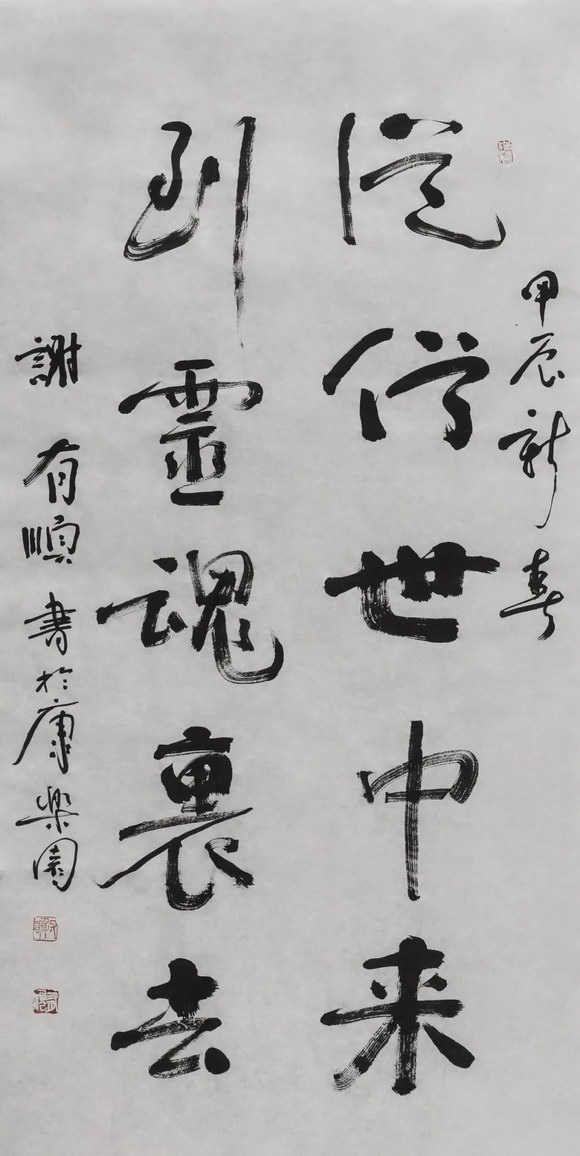 甲辰新春
從俗世中来
到靈魂裏去
謝有順書於康樂園